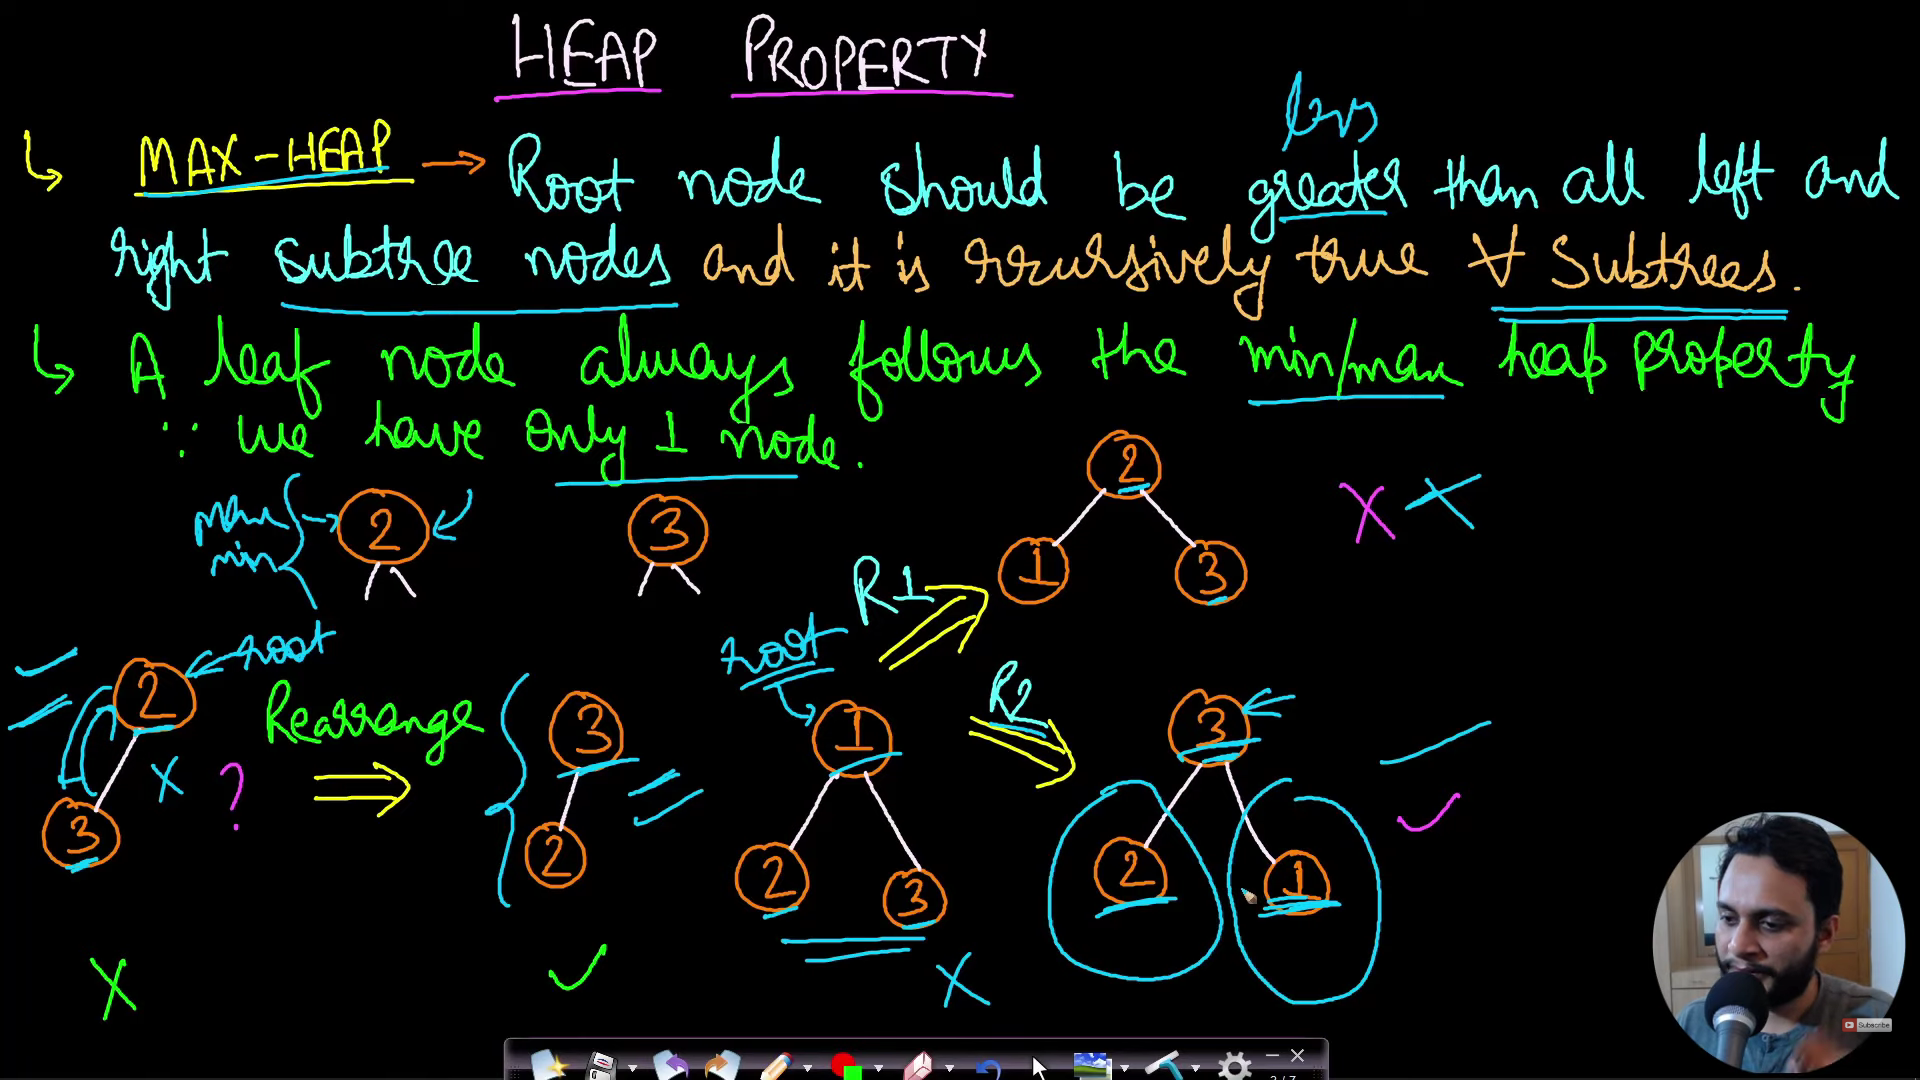 HEAP PROPERTY
less
MAX-HEAP → Root node should be greater than all left and
right subtree nodes and it is recursively true ∀ Subtrees.
A leaf node always follows the min/max heap property
∵ we have only 1 node.
2
X X
max
min
2
3
1
3
R1
root
root
2
Rearrange
R2
3
1
3
X ?
3
2
2
3
2
1
X
X
Subscribe